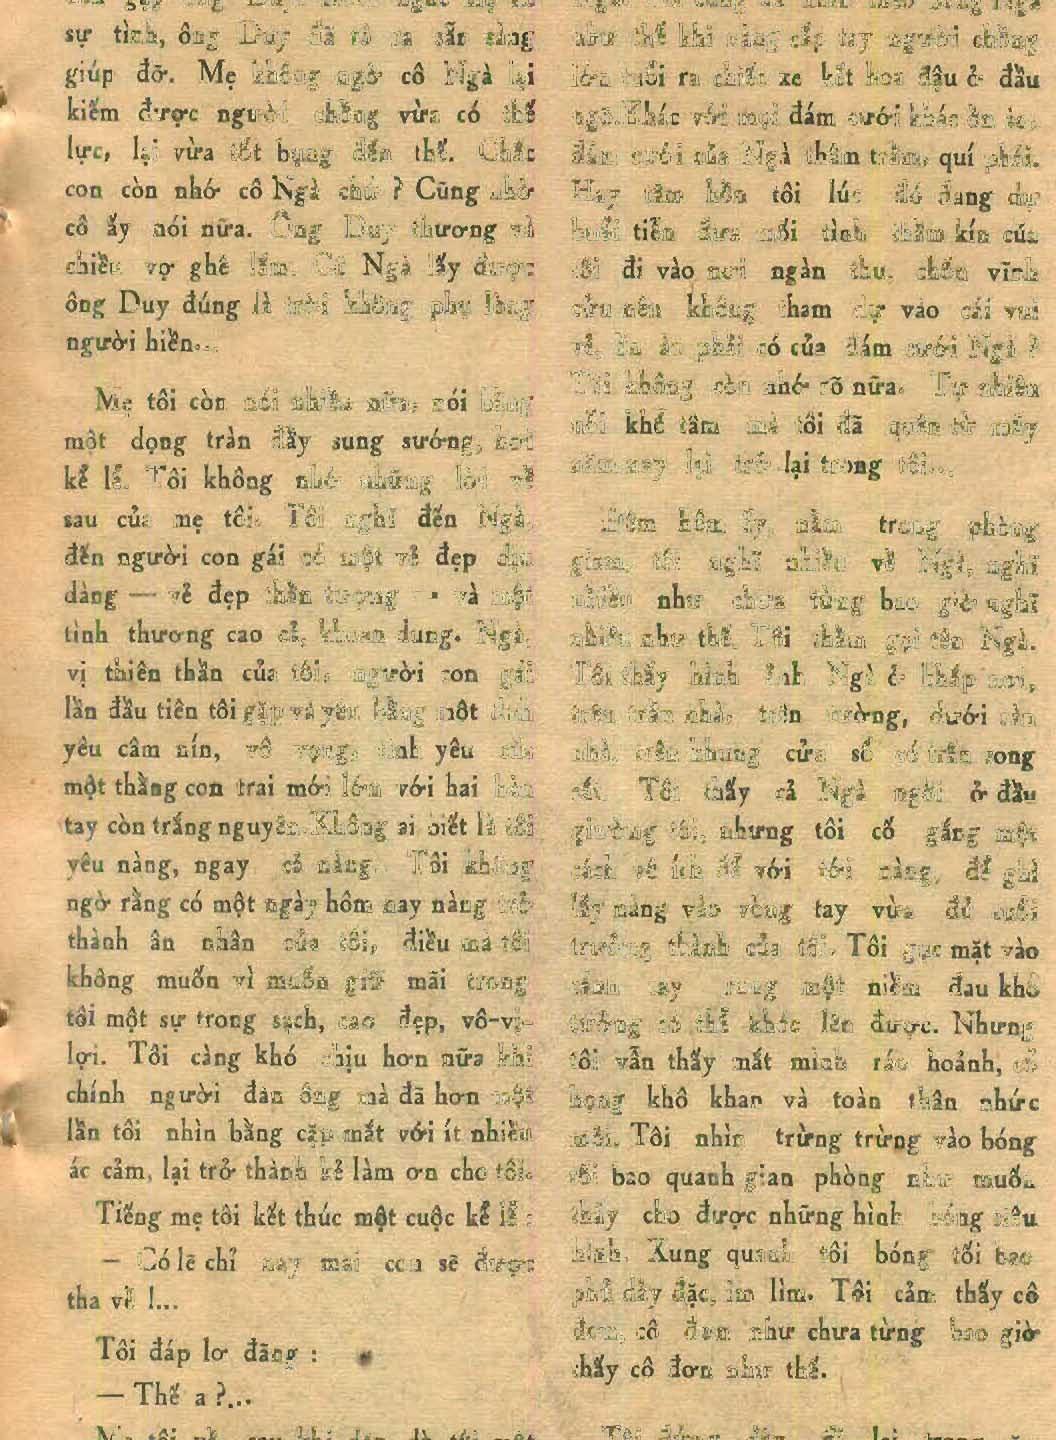 sự tình, ông Duy đã tỏ ra sẵn sàng
giúp đỡ. Mẹ không ngờ cô Ngà lại
kiếm được người chồng vừa có thế
lực, lại vừa tốt bụng đến thế. Chắc
con còn nhớ cô Ngà chứ ? Cũng nhờ
cô ấy nói nữa. Ông Duy thương và
chiều vợ ghê lắm. Cô Ngà lấy được
ông Duy đúng là trời không phụ lòng
người hiền...
Mẹ tôi còn nói nhiều nữa, nói bằng
một dọng tràn đầy sung sướng, hơi
kể lể. Tôi không nhớ những lời về
sau của mẹ tôi. Tôi nghĩ đến Ngà,
đến người con gái có một vẻ đẹp dịu
dàng — vẻ đẹp thần tượng — và một
tình thương cao cả, khoan dung. Ngà,
vị thiên thần của tôi, người con gái
lần đầu tiên tôi gặp và yêu bằng một tình
yêu câm nín, vô vọng, tình yêu của
một thằng con trai mới lớn với hai bàn
tay còn trắng nguyên. Không ai biết là tôi
yêu nàng, ngay cả nàng. Tôi không
ngờ rằng có một ngày hôm nay nàng trở
thành ân nhân của tôi, điều mà tôi
không muốn vì muốn giữ mãi trong
tôi một sự trong sạch, cao đẹp, vô-vị-
lợi. Tôi càng khó chịu hơn nữa khi
chính người đàn ông mà đã hơn một
lần tôi nhìn bằng cặp mắt với ít nhiều
ác cảm, lại trở thành kẻ làm ơn cho tôi.
Tiếng mẹ tôi kết thúc một cuộc kể lể :
— Có lẽ chỉ nay mai con sẽ được
tha về !...
Tôi đáp lơ đãng :
— Thế a ?...
như thế khi nàng cắp tay người chồng
lớn tuổi ra chiếc xe kết hoa đậu ở đầu
ngõ. Khác với mọi đám cưới khác ồn ào,
đám cưới của Ngà thâm trầm, quí phái.
Hay tâm hồn tôi lúc đó đang dự
buổi tiễn đưa mối tình thầm kín của
tôi đi vào nơi ngàn thu, chốn vĩnh
cửu nên không tham dự vào cái vui
vẻ, ồn ào phải có của đám cưới Ngà ?
Tôi không còn nhớ rõ nữa. Tự nhiên
nỗi khổ tâm mà tôi đã quên từ mấy
năm nay lại trở lại trong tôi...
Đêm hôm ấy, nằm trong phòng
giam, tôi nghĩ nhiều về Ngà, nghĩ
nhiều như chưa từng bao giờ nghĩ
nhiều như thế. Tôi thầm gọi tên Ngà.
Tôi thấy hình ảnh Ngà ở khắp nơi,
trên trần nhà, trên tường, dưới sàn
nhà, trên khung cửa sổ có trấn song
sắt. Tôi thấy cả Ngà ngồi ở đầu
giường tôi, nhưng tôi cố gắng một
cách vô ích để với tới nàng, để ghì
lấy nàng vào vòng tay vừa đủ tuổi
trưởng thành của tôi. Tôi gục mặt vào
cánh tay trong một niềm đau khổ
tưởng có thể khóc lên được. Nhưng
tôi vẫn thấy mắt mình ráo hoảnh, cổ
họng khô khan và toàn thân nhức
mỏi. Tôi nhìn trừng trừng vào bóng
tối bao quanh gian phòng như muốn
thấy cho được những hình bóng siêu
hình. Xung quanh tôi bóng tối bao
phủ dày đặc, im lìm. Tôi cảm thấy cô
đơn, cô đơn như chưa từng bao giờ
thấy cô đơn như thế.